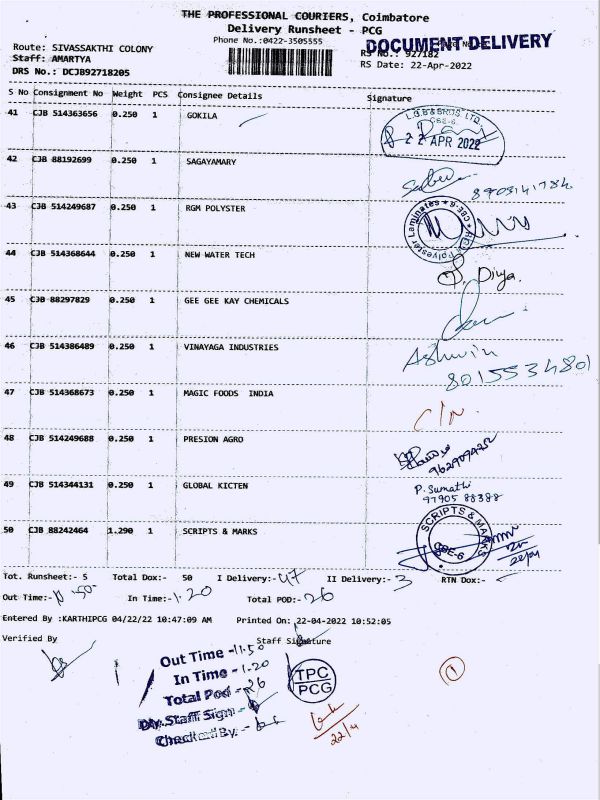 THE PROFESSIONAL COURIERS, Coimbatore
Delivery Runsheet - PCG
Phone No.:0422-3505555
DOCUMENT DELIVERY
Route: SIVASSAKTHI COLONY
Staff: AMARTYA
RS No.: 927182
DRS No.: DCJB92718205
RS Date: 22-Apr-2022
S No Consignment No Weight PCS Consignee Details Signature
41 CJB 514363656 0.250 1 GOKILA
L.G.B & BROS. LTD.
CBE-6.
22 APR 2022
42 CJB 88192699 0.250 1 SAGAYAMARY
43 CJB 514249687 0.250 1 RGM POLYSTER
Polyester Laminates * CBE-6 *
44 CJB 514368644 0.250 1 NEW WATER TECH
Diya.
45 CJB 88297829 0.250 1 GEE GEE KAY CHEMICALS
46 CJB 514386489 0.250 1 VINAYAGA INDUSTRIES
Ashwin
8015534801
47 CJB 514368673 0.250 1 MAGIC FOODS INDIA
C/N.
48 CJB 514249688 0.250 1 PRESION AGRO
49 CJB 514344131 0.250 1 GLOBAL KICTEN
P. Sumathi
97905 88388
50 CJB 88242464 1.290 1 SCRIPTS & MARKS
SCRIPTS & MARKS
CBE-6
22/04
Tot. Runsheet:- 5 Total Dox:- 50 I Delivery:- 47 II Delivery:- 3 RTN Dox:-
Out Time:- 11.50 In Time:- 1.20 Total POD:- 26
Entered By :KARTHIPCG 04/22/22 10:47:09 AM Printed On: 22-04-2022 10:52:05
Verified By Staff Signature
Out Time - 11.50
In Time - 1.20
Total Pod - 26
Dly.Staff Sign -
Checked By. -
TPC
PCG
22/4
1